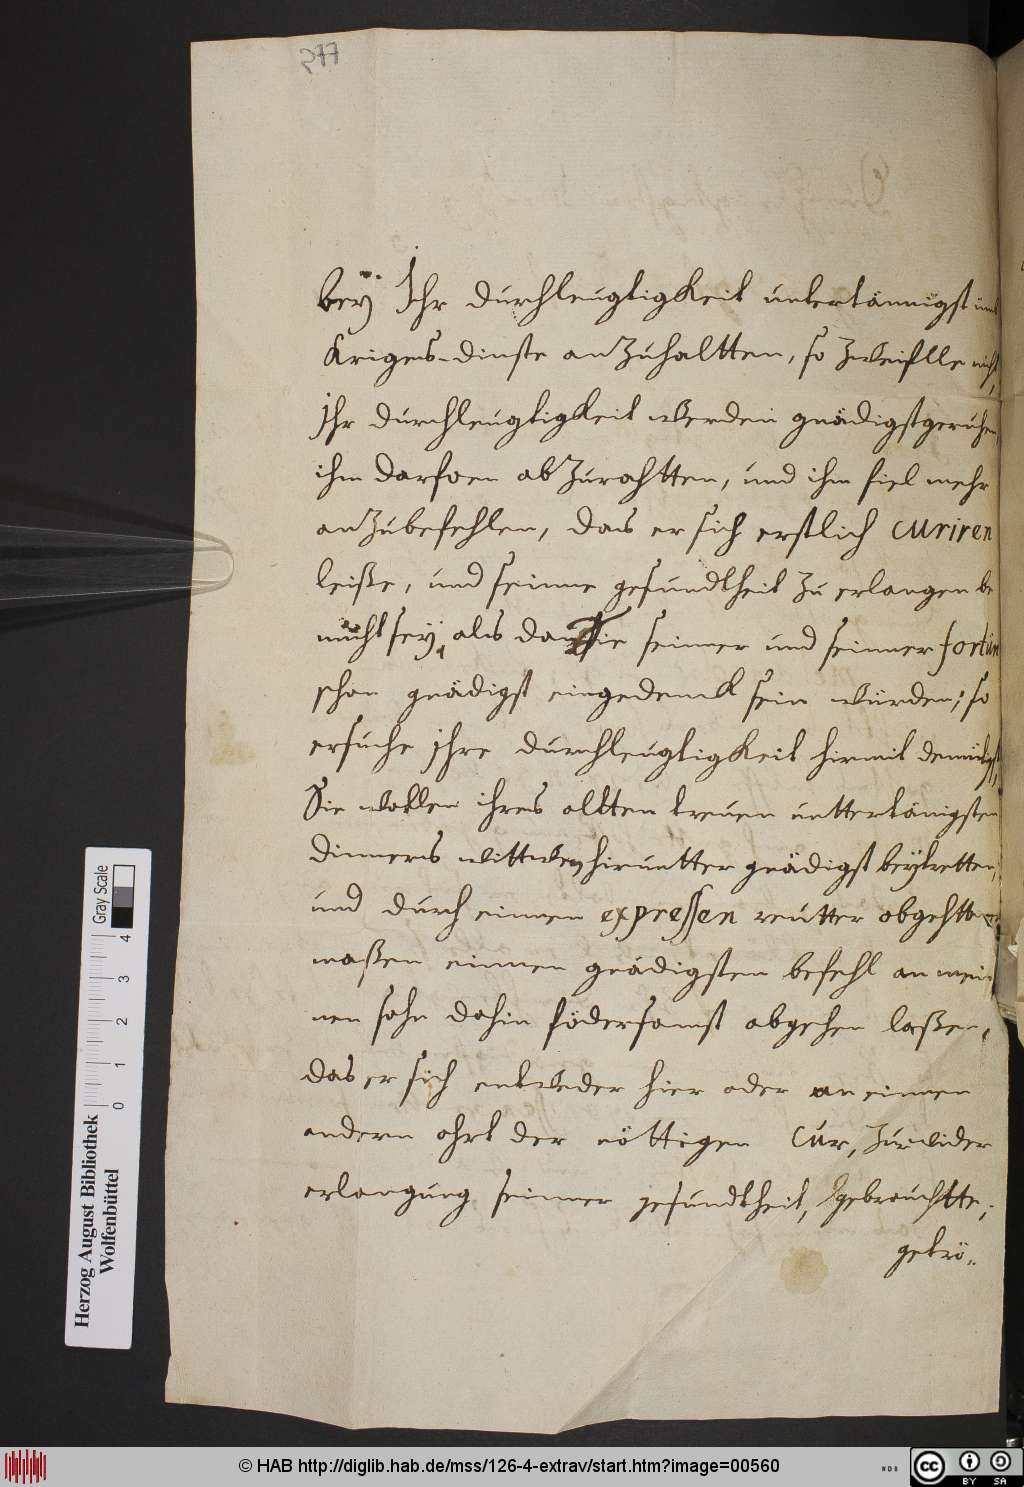 577
beÿ Ihr durchleugtigkeit untertännigst umb
Krigens-dinste an Zuhaltten, so Zweifflle nicht,
ihr durchleugtigkeit werden gnädigst geruhen,
ihm darfoen ab Zurahtten, und ihm fiel mehr
an Zubefehlen, das er sich erstlich curiren
leiße, und seinne gesundtheit zu erlangen be
müht seÿ, als dan Sie seinner und seinner fortun
schon gnädigst eingedenck sein würden; so
ersuche ihre durchleugtigkeit hirmit demütigst,
Sie wollen ihres altten treuen untertänigsten
dinners wittwen hiruntter gnädigst beÿtretten,
und durch einnen expressen reutter abgehtter
maßen einnen gnädigsten befehl an mein
nen sohn dahin födersamst abgehen laßen,
das er sich entweder hier oder an einnen
andern ohrt der nöttigen Cur, Zur wider
erlangung seinner gesundtheit, gebrauchtte;
getrö..
Gray Scale
0 1 2 3 4
Herzog August Bibliothek
Wolfenbüttel
© HAB http://diglib.hab.de/mss/126-4-extrav/start.htm?image=00560
cc BY SA